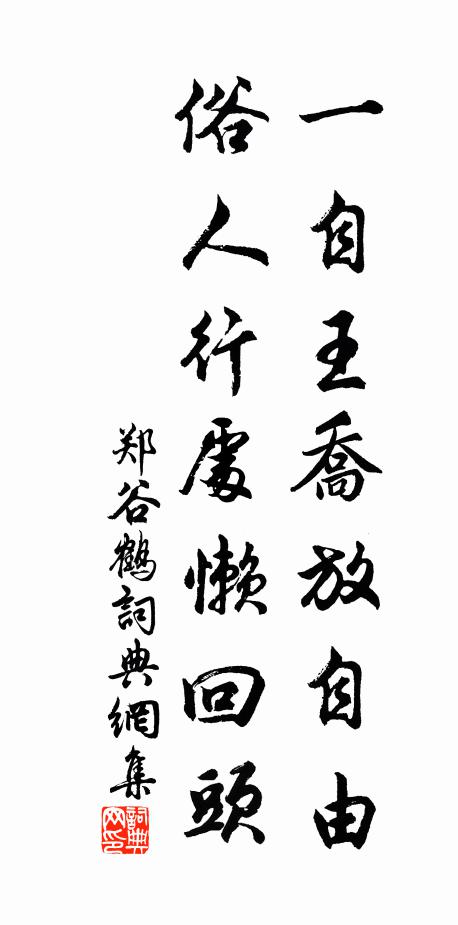 一自王喬放自由
俗人行處懶回頭
郑谷鶴詞典網集
詞典网印